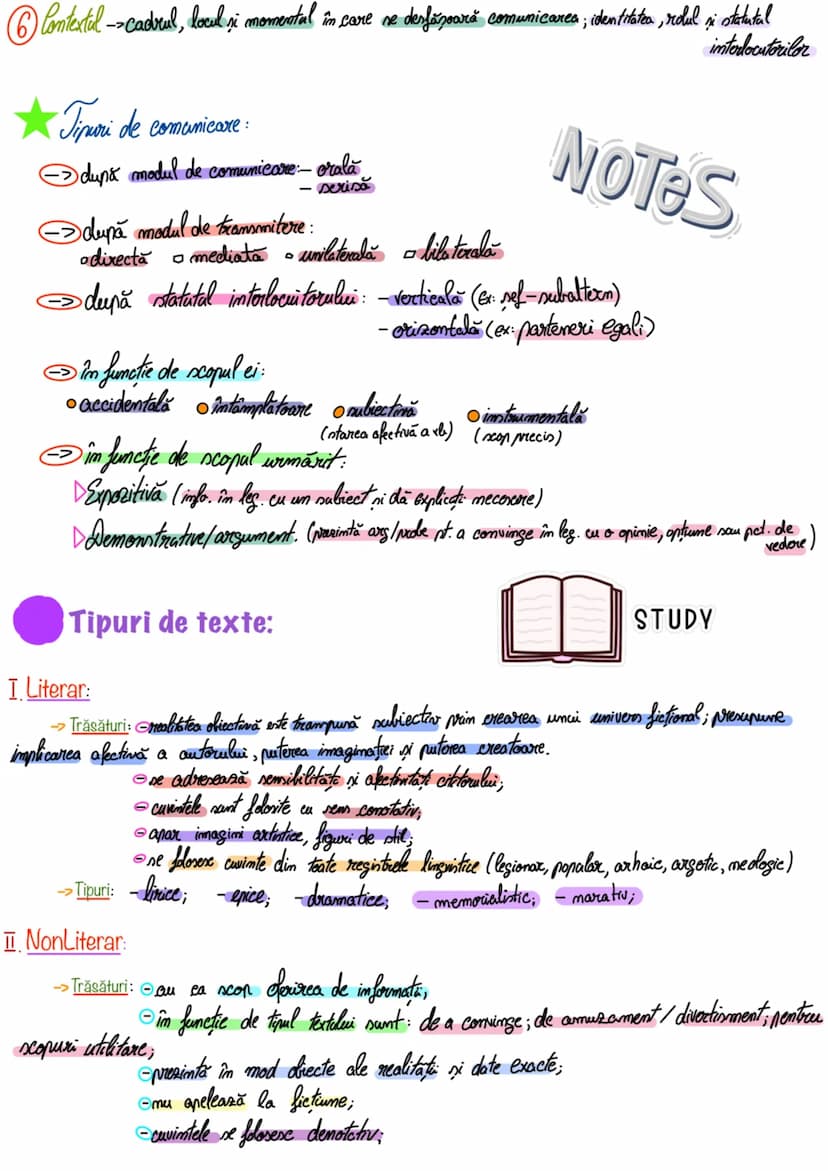 6 Contextul -> cadrul, locul și momentul în care se desfășoară comunicarea; identitatea, rolul și statutul
interlocutorilor
Tipuri de comunicare:
-> după modul de comunicare: - orală
- scrisă
NOTES
-> după modul de transmitere:
directă mediata unilaterală bilaterală
-> după statutul interlocuitorului: - verticală (Ex: șef-subaltern)
- orizontală (ex: parteneri egali)
-> în funcție de scopul ei:
accidentală întâmplătoare subiectivă instrumentală
(starea afectivă a vb) (scop precis)
-> în funcție de scopul urmărit:
Expozitivă (info. în leg. cu un subiect și dă explicații necesare)
Demonstrative/argument. (prezintă arg/probe pt. a convinge în leg. cu o opinie, opțiune sau pct. de
vedere)
Tipuri de texte:
STUDY
I. Literar:
-> Trăsături: - realitatea obiectivă este transpusă subiectiv prin crearea unui univers ficțional; presupune
implicarea afectivă a autorului, puterea imaginației și puterea creatoare.
- se adresează sensibilității și afectivității cititorului;
- cuvintele sunt folosite cu sens conotativ;
- apar imagini artistice, figuri de stil;
- se folosesc cuvinte din toate registrele lingvistice (legionar, popular, arhaic, argotic, neologic)
-> Tipuri: - lirice; - epice; - dramatice; - memorialistic; - narativ;
II. NonLiterar:
-> Trăsături: - au ca scop oferirea de informații;
- în funcție de tipul textului sunt: de a convinge; de amuzament / divertisment; pentru
scopuri utilitare;
- prezintă în mod directe ale realității și date exacte;
- nu apelează la ficțiune;
- cuvintele se folosesc denotativ;